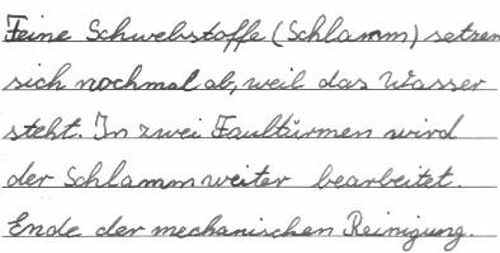 Feine Schwebstoffe (Schlamm) setzen
sich nochmal ab, weil das Wasser
steht. In zwei Faultürmen wird
der Schlamm weiter bearbeitet.
Ende der mechanischen Reinigung.